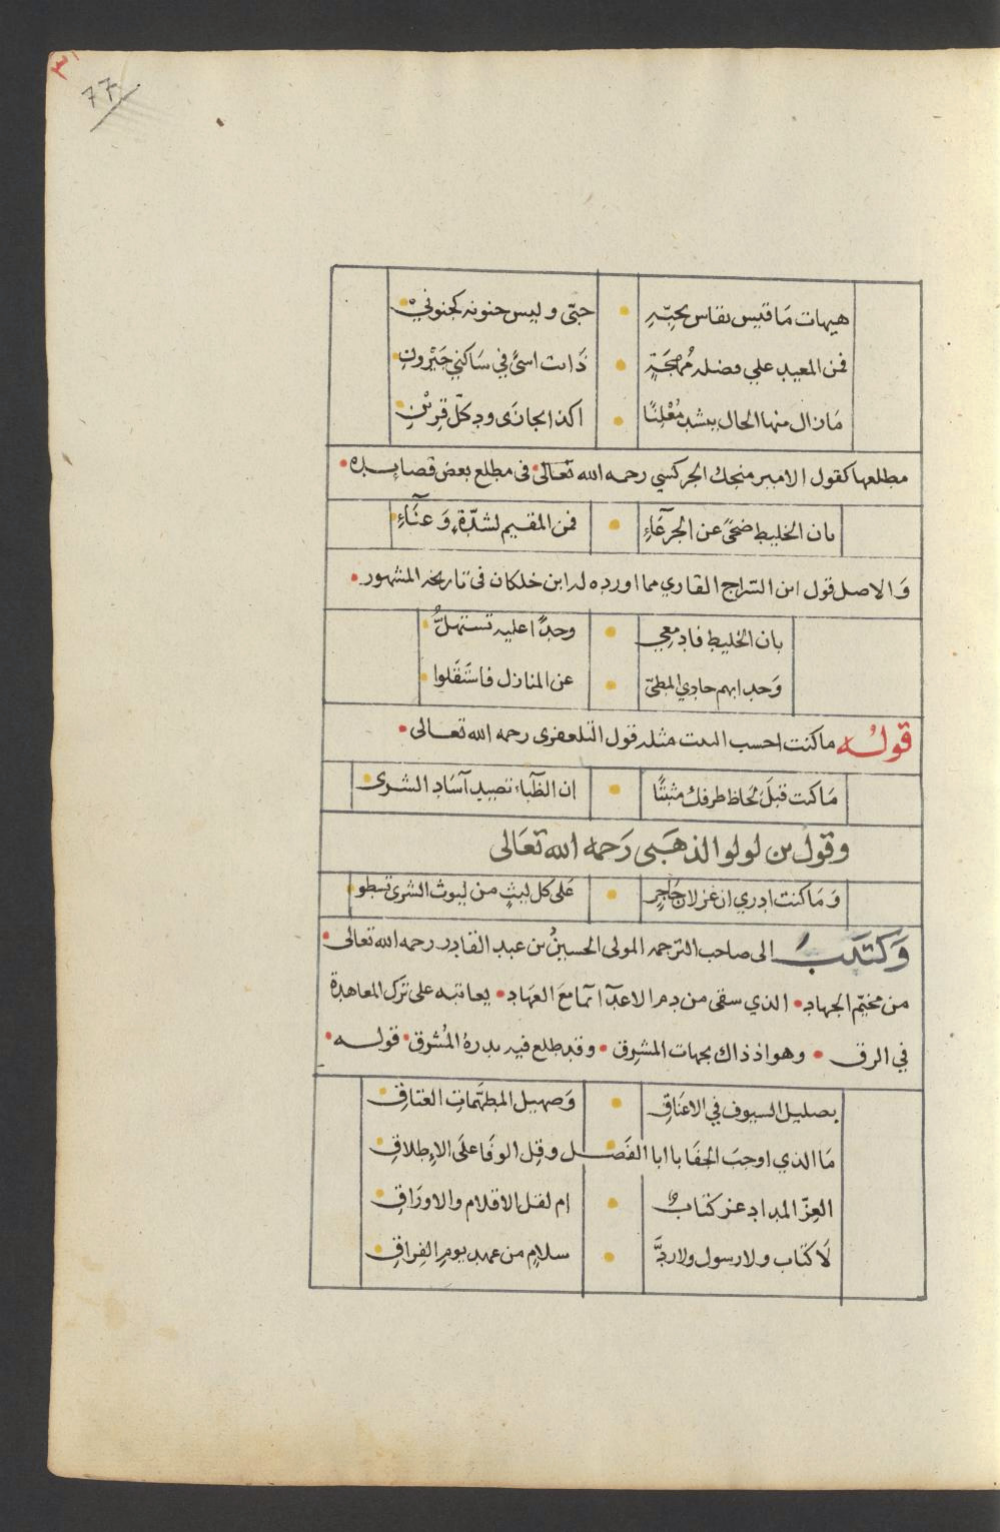 ٧٧
هيهات مَا قيس يقاس بحبّهِ • حبّى وليس جنونه كجنونيْ
فمن المعيد علي فضله مُهجَةٍ • ذابت اسىً في سَاكني جَيْرونِ
مَازال منها الحال ينشد مُعْلِنًا • اكذا يجازَى ود كلّ قرِيْنِ
مطلعها كقول الامير منجك الجركسي رحمه الله تعالى • فى مطلع بعض قصايده •
بان الخليط ضحىً عن الجرعَاءِ • فمن المقيم لشدّةٍ وَ عنَاءِ
وَالاصل قول ابن السّراج القاري مما اورده له ابن خلكان فى تاريخه المشهور •
بان الخليط فادمعي • وجدًا عليه تستهلُّ
وَحدا بهم حادي المطيّ • عن المنازل فاستَقَلوا
قولُه ما كنت احسب البيت مثله قول التلعفرى رحمه الله تعالى •
مَا كنت قبلَ لحاظ طرفك مثبتًا • ان الظّباء تصيد آسَاد الشرى
وقول بن لولو الذهَبى رَحمه الله تعَالى
وَمَا كنت ادري ان غزلان حَاجرٍ • عَلى كل ليثٍ من ليوث الشرى تسطو
وَكتَبَ الى صاحب الترجمه المولى الحسينُ بن عبد القادر رحمه الله تعالى •
من مخيّم الجهاد • الذي سقى من دم الاعدآ آمامعَ العهَاد • يعاتبه على تَرك المعاهدة
في الرق • وهو اذ ذاك بجهات المشرق • وقد طلع فيه بدرهُ المُشرق • قولــه •
بصليل السيوف في الاعنَاقِ • وَصهيل المطهّماتِ العتاقِ
مَا الذي اوجبَ الجفَا با ابا الفَضــل وقل الوفَا علَى الاِطلاقِ
العِزّ المداد عز كتابٌ • ام لقل الاقلام والاورَاقِ
لَا كتاب ولا رسول ولا ردَّ • سلامٍ من عهد يومِ الفِراقِ